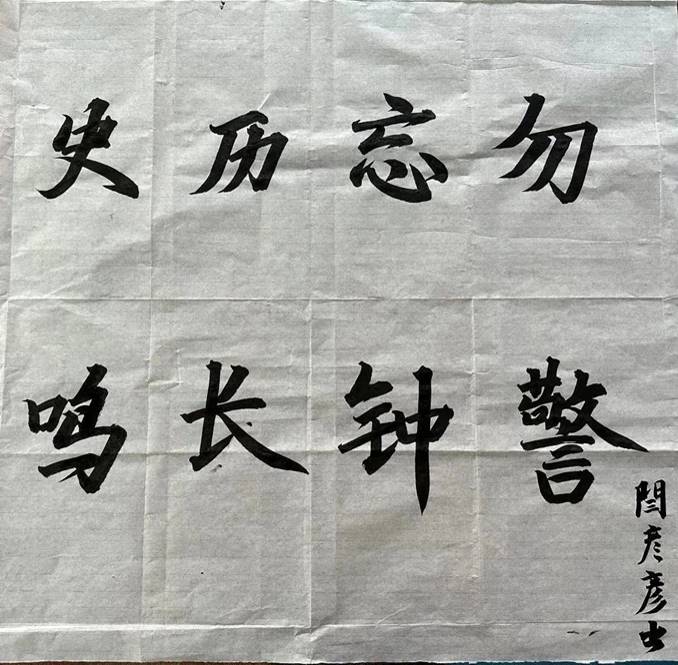 勿忘历史
警钟长鸣
闫彦彦书